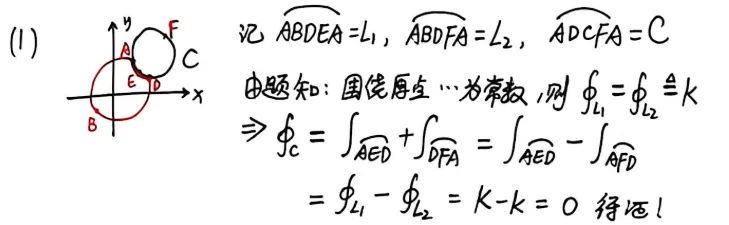 (1)
y
A
F
C
E
D
x
B
记 ABDEA = L₁, ABDFA = L₂, ADCFA = C
由题知: 围绕原点…为常数, 则 ∮_{L₁} = ∮_{L₂} ≜ k
⇒ ∮_C = ∫_{AED} + ∫_{DFA} = ∫_{AED} - ∫_{AFD}
= ∮_{L₁} - ∮_{L₂} = K - k = 0 得证!